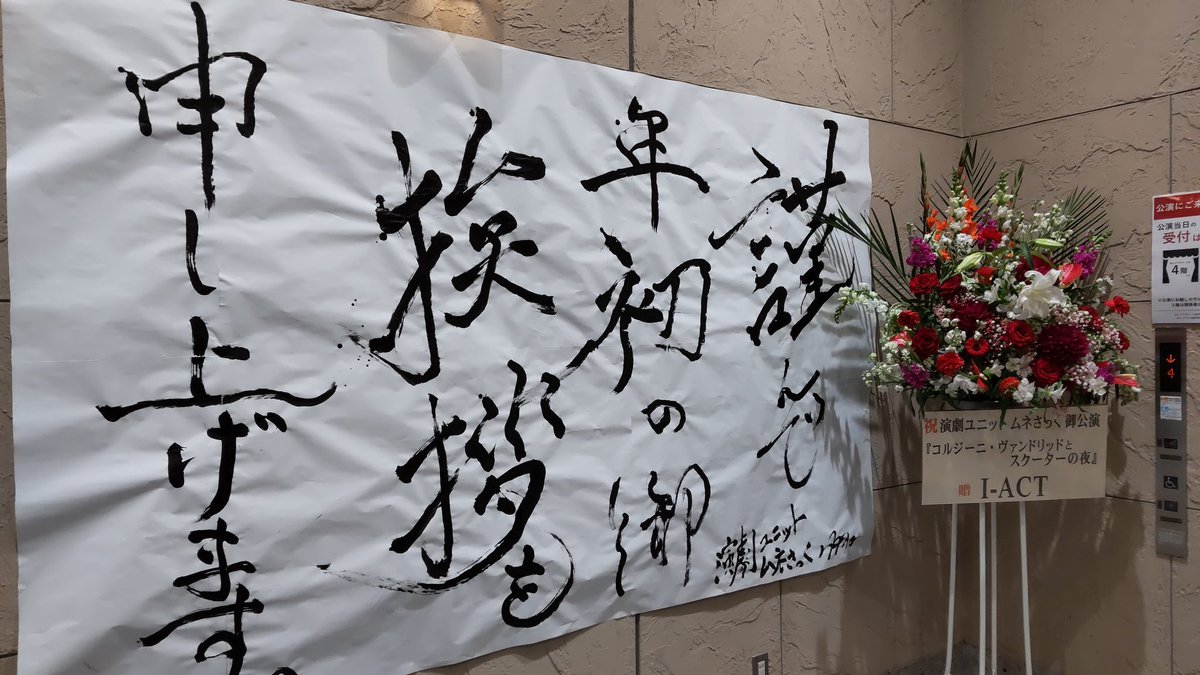 謹んで
年初の御
挨拶を
申し上げ来ます。
演劇ユニット
ムネさっく
祝 演劇ユニットムネさっく 御公演
『コルジーニ・ヴァンドリッドと
スクーターの夜』
贈 I-ACT
公演にご来
公演当日の
受付は
4階
4